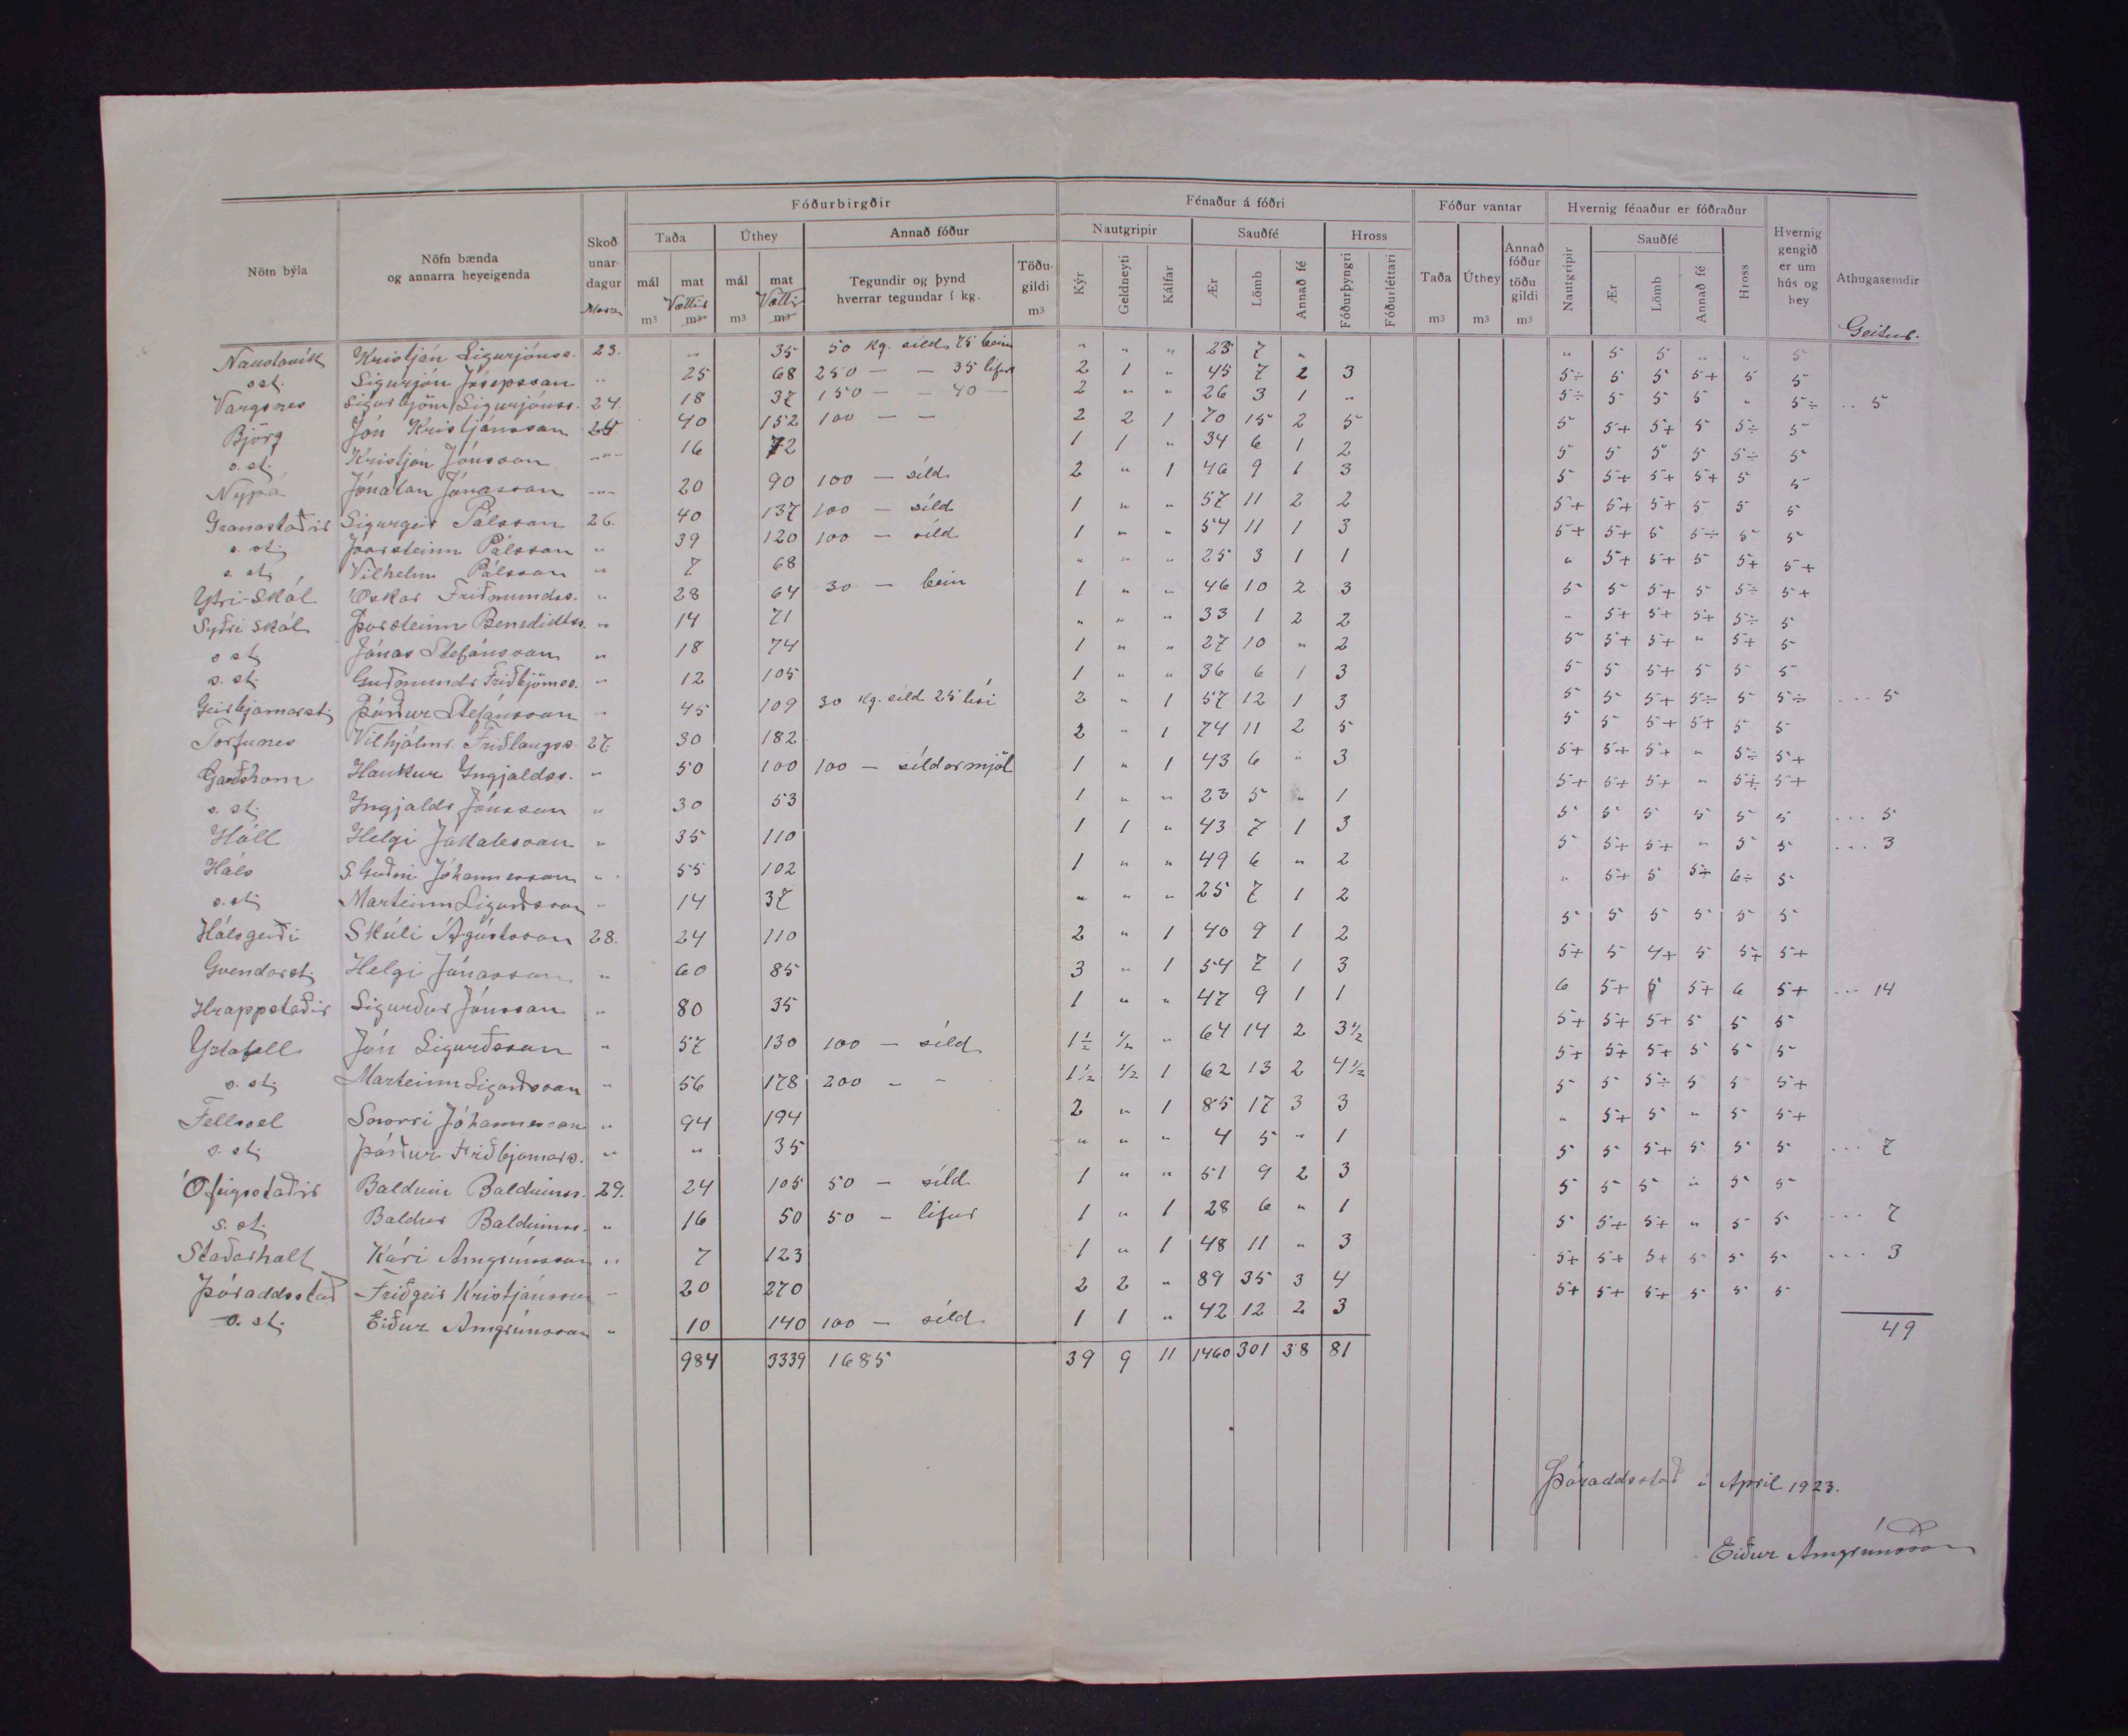 Fóðurbirgðir Fénaður á fóðri Fóður vantar Hvernig fénaður er fóðraður
Nöfn býla Nöfn bænda og annarra heyeigenda Skoðunardagur Marz Taða Úthey Annað fóður Nautgripir Sauðfé Hross Taða Úthey Annað fóður töðugildi Nautgripir Sauðfé Hross Hvernig gengið er um hús og hey Athugasemdir
mál m³ mat Vættir m³ mál m³ mat Vættir m³ Tegundir og þynd hverrar tegundar í kg. Töðugildi m³ Kýr Geldneyti Kálfar Ær Lömb Annað fé Fóðurþyngri Fóðurléttari m³ m³ m³ Ær Lömb Annað fé Geitur.
Naustavík Kristján Sigurjónss. 23. " 35 50 kg. síld 75 bein " " " 23 7 " " 5 5 " " 5
s.st. Sigurjón Jósepsson " 25 68 250 — — 35 lifur 2 1 " 45 7 2 3 5÷ 5 5 5+ 5 5
Vargsnes Sigurbjörn Sigurjónss. 24. 18 37 150 — — 40 — 2 " " 26 3 1 " 5÷ 5 5 5 " 5÷ .. 5
Björg Jón Kristjánsson 25. 40 152 100 — — 2 2 1 70 15 2 5 5 5+ 5+ 5 5÷ 5
s.st. Kristján Jónsson " 16 72 1 1 " 34 6 1 2 5 5 5 5 5÷ 5
Nýpá Jónatan Jónasson " 20 90 100 — síld 2 " 1 46 9 1 3 5 5+ 5+ 5+ 5 5
Granastaðir Sigurgeir Pálsson 26. 40 137 100 — síld 1 " " 57 11 2 2 5+ 5+ 5+ 5 5 5
s.st. Þorsteinn Pálsson " 39 120 100 — síld 1 " " 54 11 1 3 5+ 5+ 5 5÷ 5 5
s.st. Vilhelm Pálsson " 7 68 " " " 25 3 1 1 " 5+ 5+ 5 5+ 5+
Ytri-Skál Óskar Friðmundss. " 28 64 30 — bein 1 " " 46 10 2 3 5 5 5+ 5 5÷ 5+
Syðri Skál Þorsteinn Benediktss. " 14 71 " " " 33 1 2 2 " 5+ 5+ 5+ 5÷ 5
s.st. Jónas Stefánsson " 18 74 1 " " 27 10 " 2 5 5+ 5+ " 5+ 5
s.st. Guðmundr Friðbjörnss. " 12 105 1 " " 36 6 1 3 5 5 5+ 5 5 5
Geirbjarnarst. Þórður Stefánsson " 45 109 30 kg. síld 25 lísi 2 " 1 57 12 1 3 5 5 5+ 5÷ 5 5÷ ... 5
Torfunes Vilhjálmr. Friðlaugss. 27. 30 182 2 " 1 74 11 2 5 5 5 5+ 5+ 5 5
Garðshorn Haukur Ingjaldss. " 50 100 100 — síldarmjöl 1 " 1 43 6 " 3 5+ 5+ 5+ " 5÷ 5+
s.st. Ingjaldr Jónsson " 30 53 1 " " 23 5 " 1 5+ 5+ 5+ " 5÷ 5+
Hóll Helgi Jakobsson " 35 110 1 1 " 43 7 1 3 5 5 5 5 5 5 ... 5
Háls S. Guðni Jóhannesson " 55 102 1 " " 49 6 " 2 5 5+ 5+ " 5 5 ... 3
s.st. Marteinn Sigurðsson " 14 37 " " " 25 7 1 2 " 5+ 5 5÷ 6÷ 5
Hálsgerði Skúli Ágústsson 28. 24 110 2 " 1 40 9 1 2 5 5 5 5 5 5
Gvendarst. Helgi Jónasson " 60 85 3 " 1 54 7 1 3 5+ 5 4+ 5 5÷ 5+
Hrappstaðir Sigurður Jónsson " 80 35 1 " " 47 9 1 1 6 5+ 5 5+ 6 5+ ... 14
Ystafell Jón Sigurðsson " 57 130 100 — síld 1½ ½ " 64 14 2 3½ 5+ 5+ 5+ 5 5 5
s.st. Marteinn Sigurðsson " 56 178 200 — — 1½ ½ 1 62 13 2 4½ 5+ 5+ 5+ 5 5 5
Fellssel Snorri Jóhannesson " 94 194 2 " 1 85 17 3 3 5 5 5÷ 5 5 5+
s.st. Þórður Friðbjarnars. " " 35 " " " 4 5 " 1 " 5+ 5 " 5 5+
Ófeigsstaðir Balduin Balduinss. 29. 24 105 50 — síld 1 " " 51 9 2 3 5 5 5+ 5 5 5 ... 7
s.st. Baldur Balduinss. " 16 50 50 — lifur 1 " 1 28 6 " 1 5 5 5 " 5 5
Staðarholt Kári Arngrímsson " 7 123 1 " 1 48 11 " 3 5 5+ 5+ " 5 5 ... 7
Þóraddsstað Friðgeir Kristjánsson " 20 270 2 2 " 89 35 3 4 5+ 5+ 5+ 5 5 5 ... 3
s.st. Eiður Arngrímsson " 10 140 100 — síld 1 1 " 42 12 2 3 5+ 5+ 5+ 5 5 5
984 3339 1685 39 9 11 1460 301 38 81 49
Þóraddsstað í April 1923.
Eiður Arngrímsson